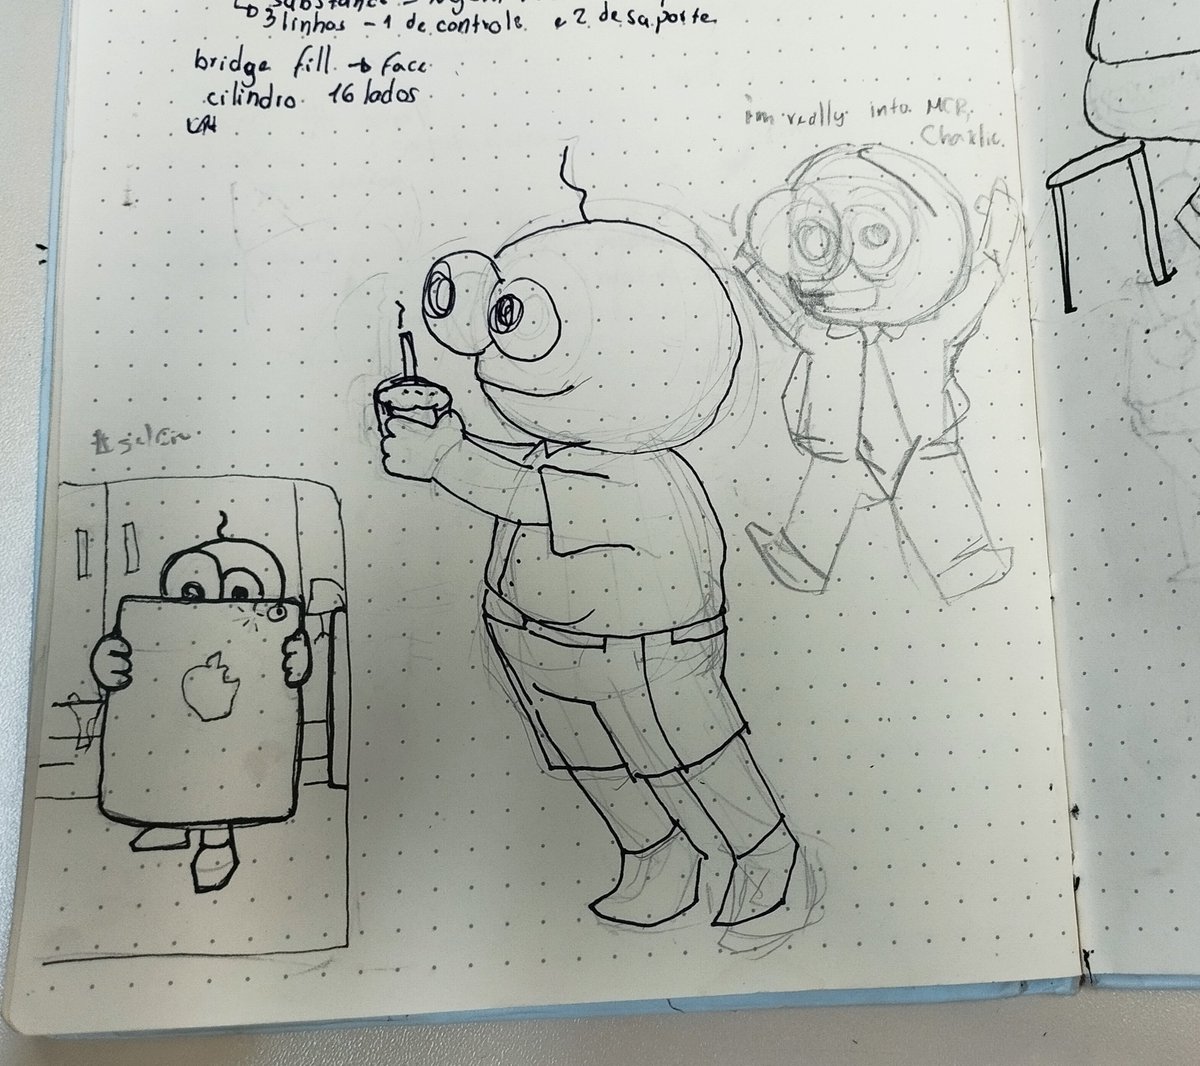 3 linhas - 1 de controle e 2 de suporte
bridge fill → face
cilindro 16 lados
i'm really into MCR,
Charlie.